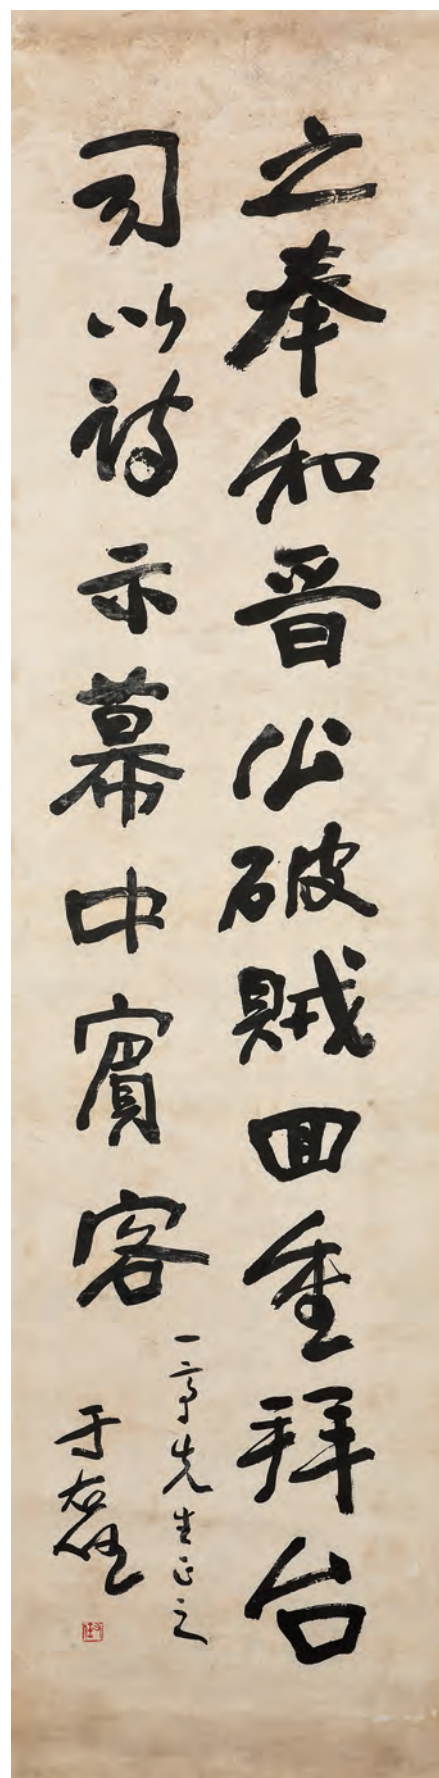 之奉和晋公破賊回重拜台
司以詩示幕中賓客
一亭先生正之
于右任